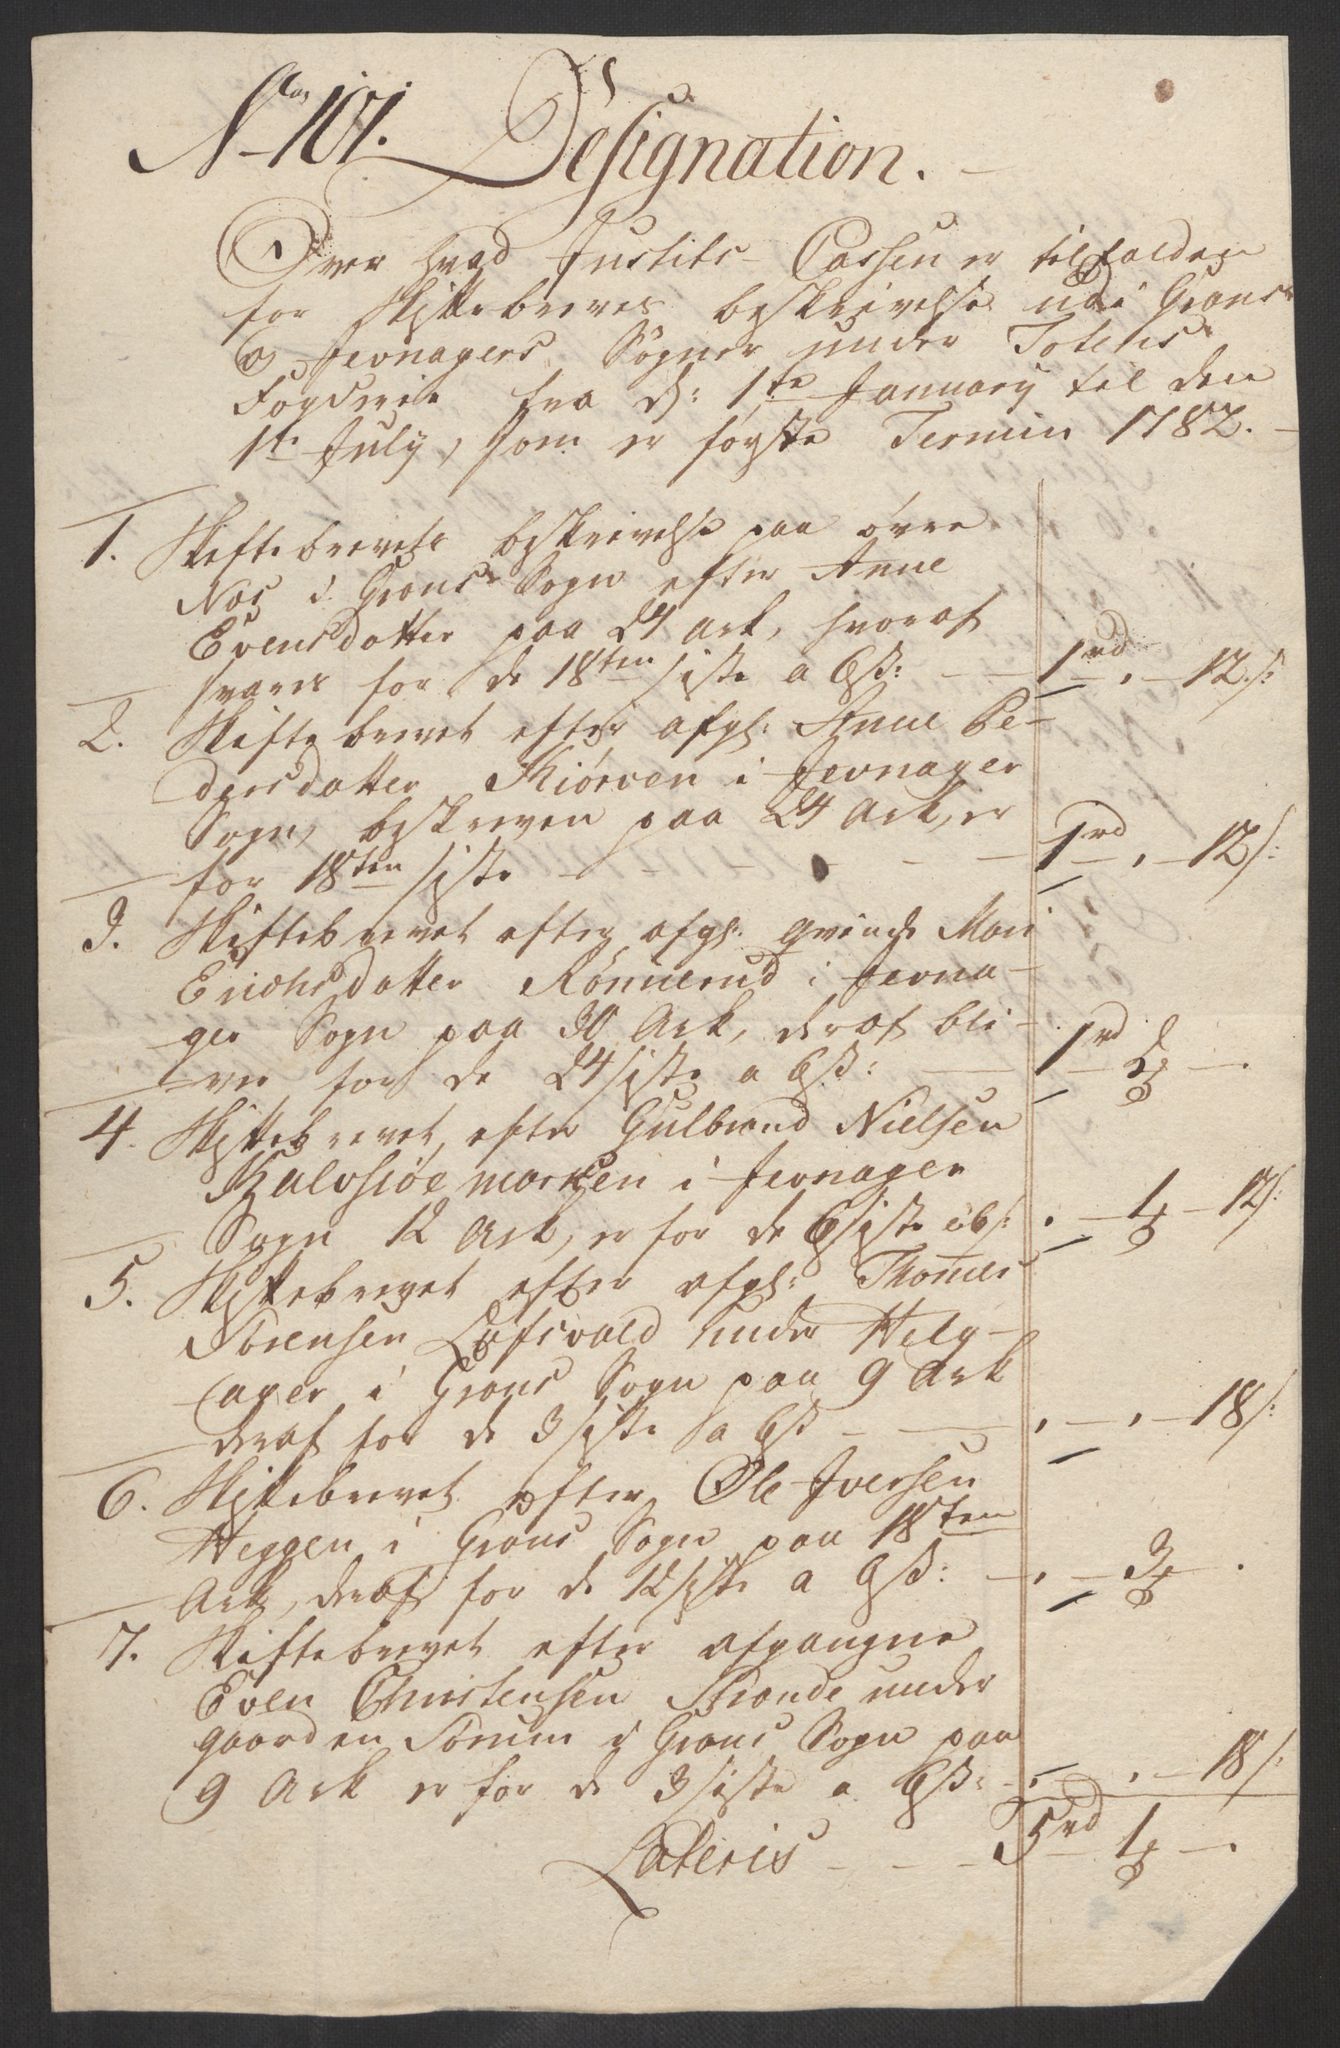 No 101. Designation.
Over hvad Justits-Cassen er tilfalden
for Skiftebreves beskrivelse udi Grans
og Jevnagers Sogner under Totens
Fogderie fra d: 1te January til den
1te July, som er første Termin 1782.
1. Skiftebrevets beskrivelse paa øvre
Næs i Grans Sogn efter Anne
Evensdatter paa 24 ark, hvoraf
svares for de 18ten siste a 6ß: 1rd . 12ß:
2. Skiftebrevet efter afgl: Anne Pe-
dersdatter Kiørven i Jevnager
Sogn, beskreven paa 24 Ark, er
for 18ten siste 1rd . 12ß:
3. Skiftebrevet efter afgl: Qvinde Mari
Erichsdatter Rønnerud i Jevna-
ger Sogn paa 30 Ark, deraf bli-
ver for de 24 siste a 6ß: 1rd 2 .
4. Skiftebrevet efter Gulbrand Nielsen
Kalvsiøe marken i Jevnager
Sogn 12 Ark, er for de 6 siste . 1 12ß:
5. Skiftebrevet efter afgl: Thomes
Sørensen Løfsvald under Helg-
ager i Grans Sogn paa 9 Ark
deraf for de 3 siste a 6ß . . 18ß:
6. Skiftebrevet efter Ole Iversen
Heggen i Grans Sogn paa 18ten
Ark, deraf for de 12 siste a 6ß: . 3 .
7. Skiftebrevet efter afgangne
Even Christensen Strande under
gaarden Sørum i Grans Sogn paa
9 Ark er for de 3 siste a 6ß: . . 18ß:
Lateris 5rd 1 .